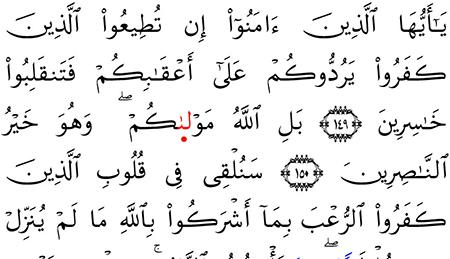 يَـٰٓأَيُّهَا ٱلَّذِينَ ءَامَنُوٓا۟ إِن تُطِيعُوا۟ ٱلَّذِينَ
كَفَرُوا۟ يَرُدُّوكُمْ عَلَىٰٓ أَعْقَـٰبِكُمْ فَتَنقَلِبُوا۟
خَـٰسِرِينَ ١٤٩ بَلِ ٱللَّهُ مَوْلَىٰكُمْ ۖ وَهُوَ خَيْرُ
ٱلنَّـٰصِرِينَ ١٥٠ سَنُلْقِى فِى قُلُوبِ ٱلَّذِينَ
كَفَرُوا۟ ٱلرُّعْبَ بِمَآ أَشْرَكُوا۟ بِٱللَّهِ مَا لَمْ يُنَزِّلْ